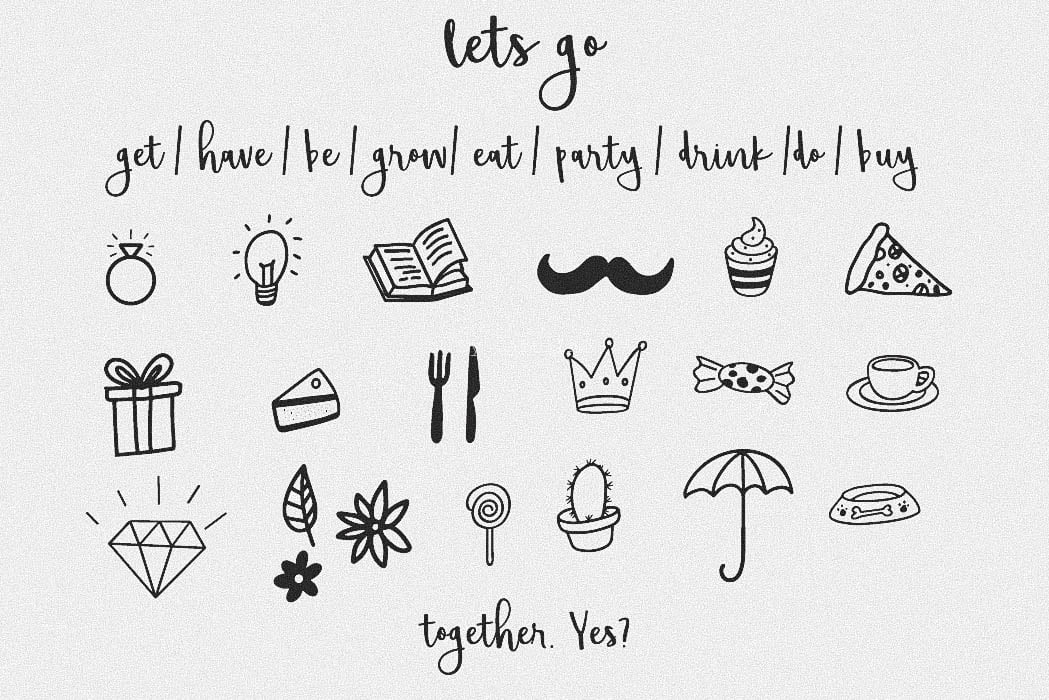 lets go
get | have | be | grow | eat | party | drink | do | buy
together. Yes?